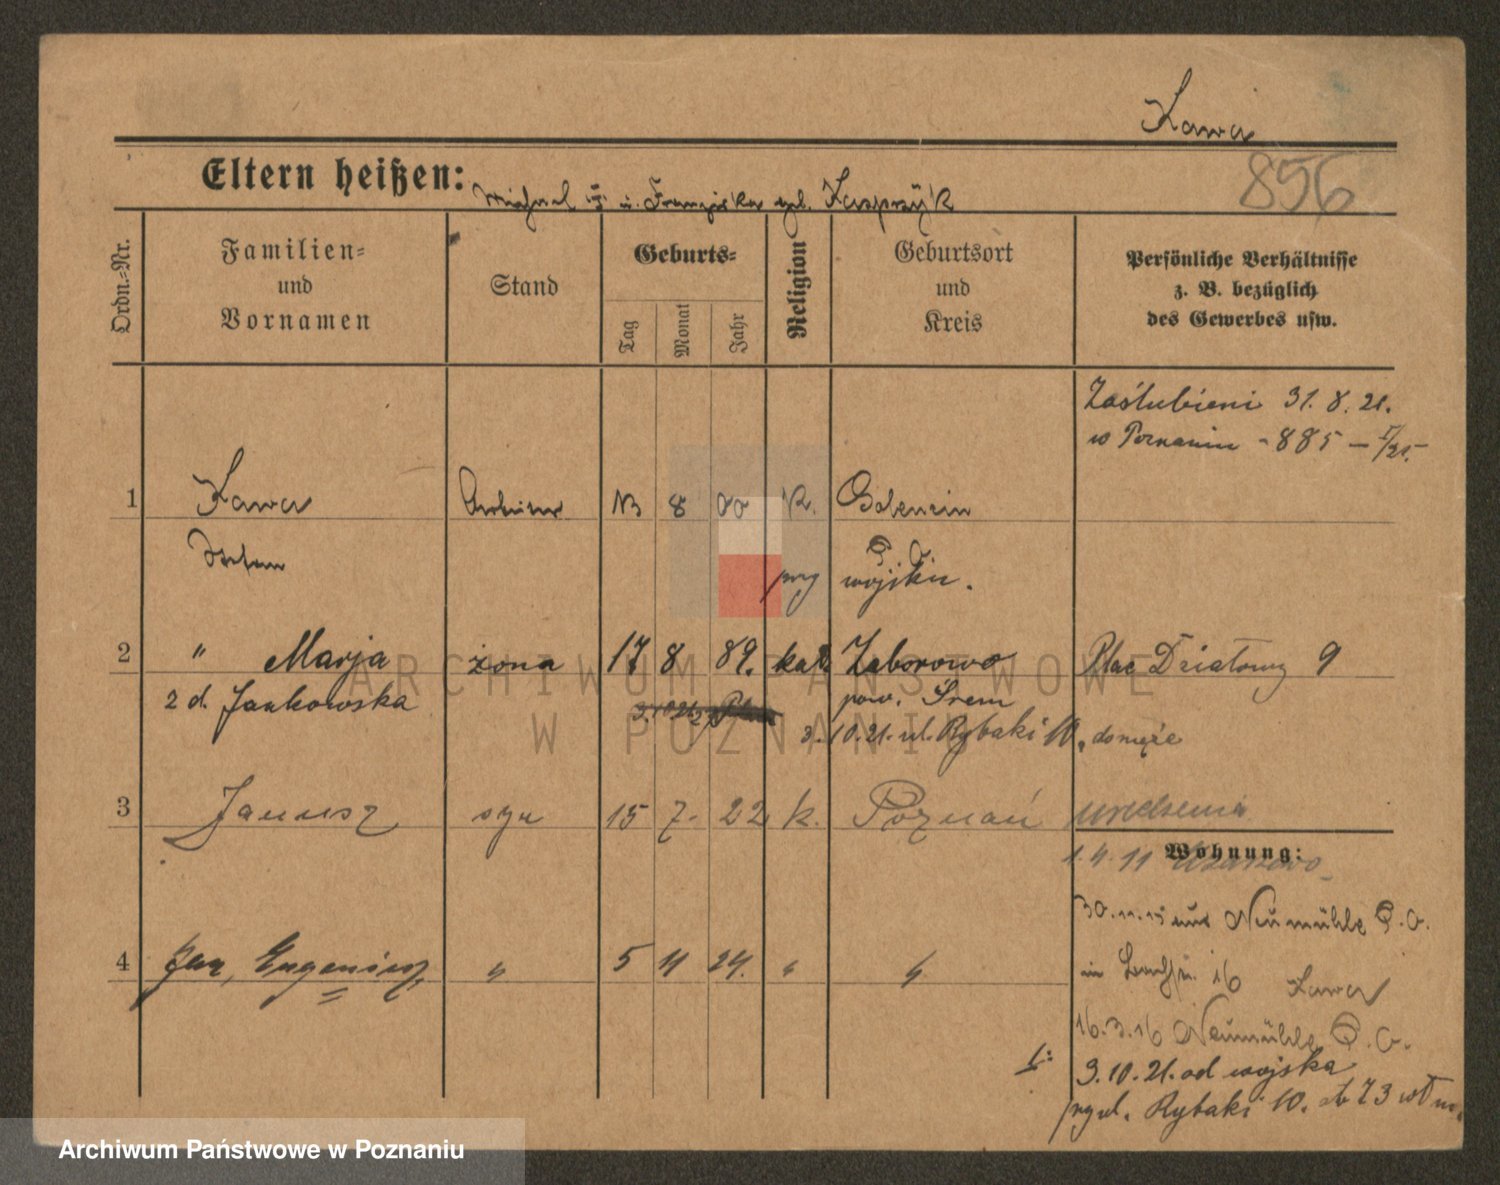 Kawa
856
Eltern heißen: Michael u. Franziska geb. Kasprzyk
Ordn.-Nr.
Familien- und Vornamen
Stand
Geburts-
Tag
Monat
Jahr
Religion
Geburtsort und Kreis
Persönliche Verhältnisse
z. B. bezüglich
des Gewerbes usw.
Zaślubieni 31. 8. 21.
w Poznaniu - 885 -
1 Kawa Arbeiter 8 K. Golencin
Stefan P. O.
przy wojsku.
2 " Marja żona 17 8 89. kat. Zaborowo Plac Działowy 9
z d. Jankowska pow. Śrem
3.10.21. ul. Rybaki 10,
3 Janusz syn 15 7. 22 k. Poznań
Wohnung:
1. 4. 11
30.11.15 aus Neumühle P. O.
4 Jan, Eugeniusz, " 5 11 24. " "
in 16 Kawa
16.3.16 Neumühle P. O.
3.10.21. od wojska
przy ul. Rybaki 10.
ARCHIWUM PAŃSTWOWE
W POZNANIU
Archiwum Państwowe w Poznaniu